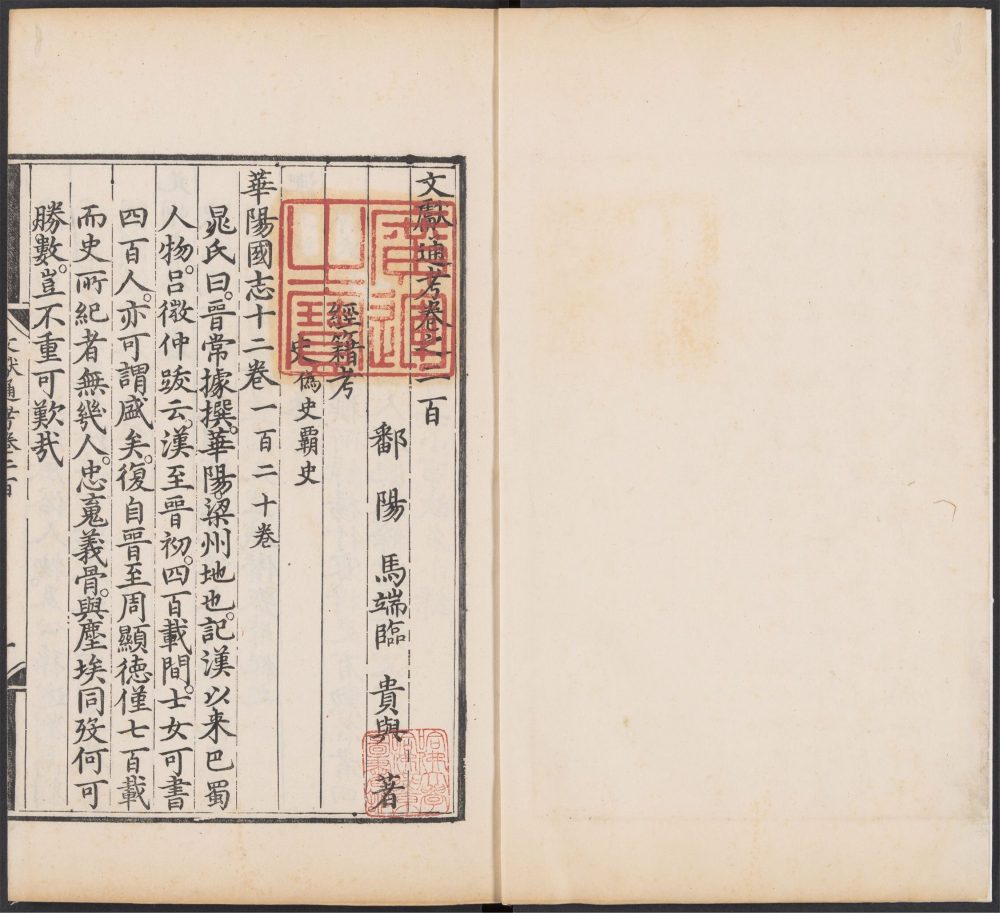 文獻通考卷之二百
鄱陽馬端臨貴與著
經籍考
史 偽史霸史
華陽國志十二卷一百二十卷
晁氏曰。晉常據撰。華陽。梁州地也。記漢以来巴蜀
人物。呂微仲跋云。漢至晉初。四百載間。士女可書
四百人。亦可謂盛矣。復自晉至周顯徳僅七百載
而史所紀者無幾人。忠䰟義骨。與塵埃同殁何可
勝數。豈不重可歎㢤
文獻通考卷二百